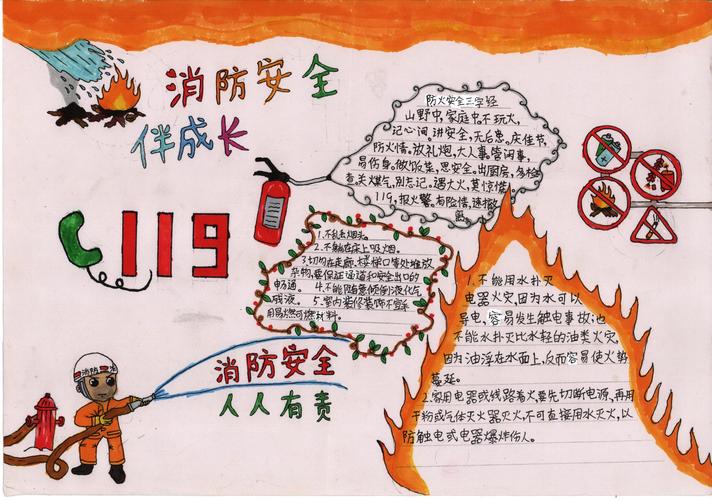 消防安全
伴成长
119
防火安全三字经
山野中,家庭中,不玩火,
记心间。讲安全,无后患,庆佳节,
防火情。放礼炮,大人事。管闲事,
易伤身。做饭菜,思安全。出厨房,多检
查,关火煤气,别忘记。遇大火,莫惊慌!
119,报火警。有险情,速撤
离。
1.不乱丢烟头。
2.不躺在床上吸烟。
3.切勿在走廊、楼梯口等处堆放
杂物,要保证通道和安全出口的
畅通。4.不能随意倾倒液化气
残液。5.室内装修装饰不宜采
用易燃可燃材料。
消防
消防安全
人人有责
1.不能用水扑灭
电器火灾,因为水可以
导电,容易发生触电事故;也
不能水扑灭比水轻的油类火灾,
因为油浮在水面上,反而容易使火势
蔓延。
2.家用电器或线路着火,要先切断电源,再用
干粉或气体灭火器灭火,不可直接用水灭火,以
防触电或电器爆炸伤人。